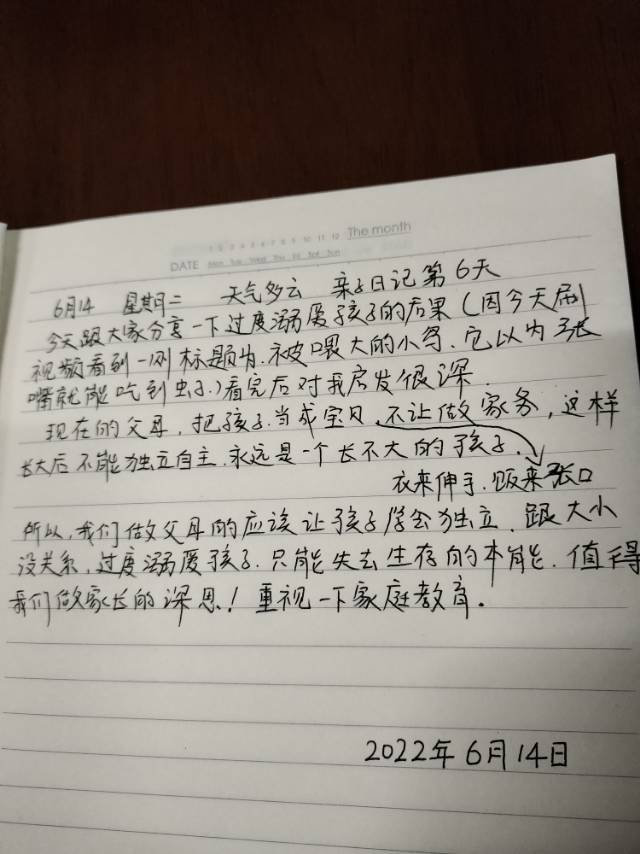 1 2 3 4 5 6 7 8 9 10 11 12 The month
DATE Mon Tue Wed Thu Fri Sat Sun
6月14 星期二 天气多云 亲子日记第6天
今天跟大家分享一下过度溺爱孩子的后果(因今天刷
视频看到一例标题为.被喂大的小鸟.它以为张
嘴就能吃到虫子.)看完后对我启发很深.
现在的父母,把孩子当成宝贝,不让做家务,这样
长大后不能独立自主.永远是一个长不大的孩子.
衣来伸手.饭来张口
所以,我们做父母的应该让孩子学会独立.跟大小
没关系,过度溺爱孩子.只能失去生存的本能.值得
我们做家长的深思!重视一下家庭教育.
2022年6月14日